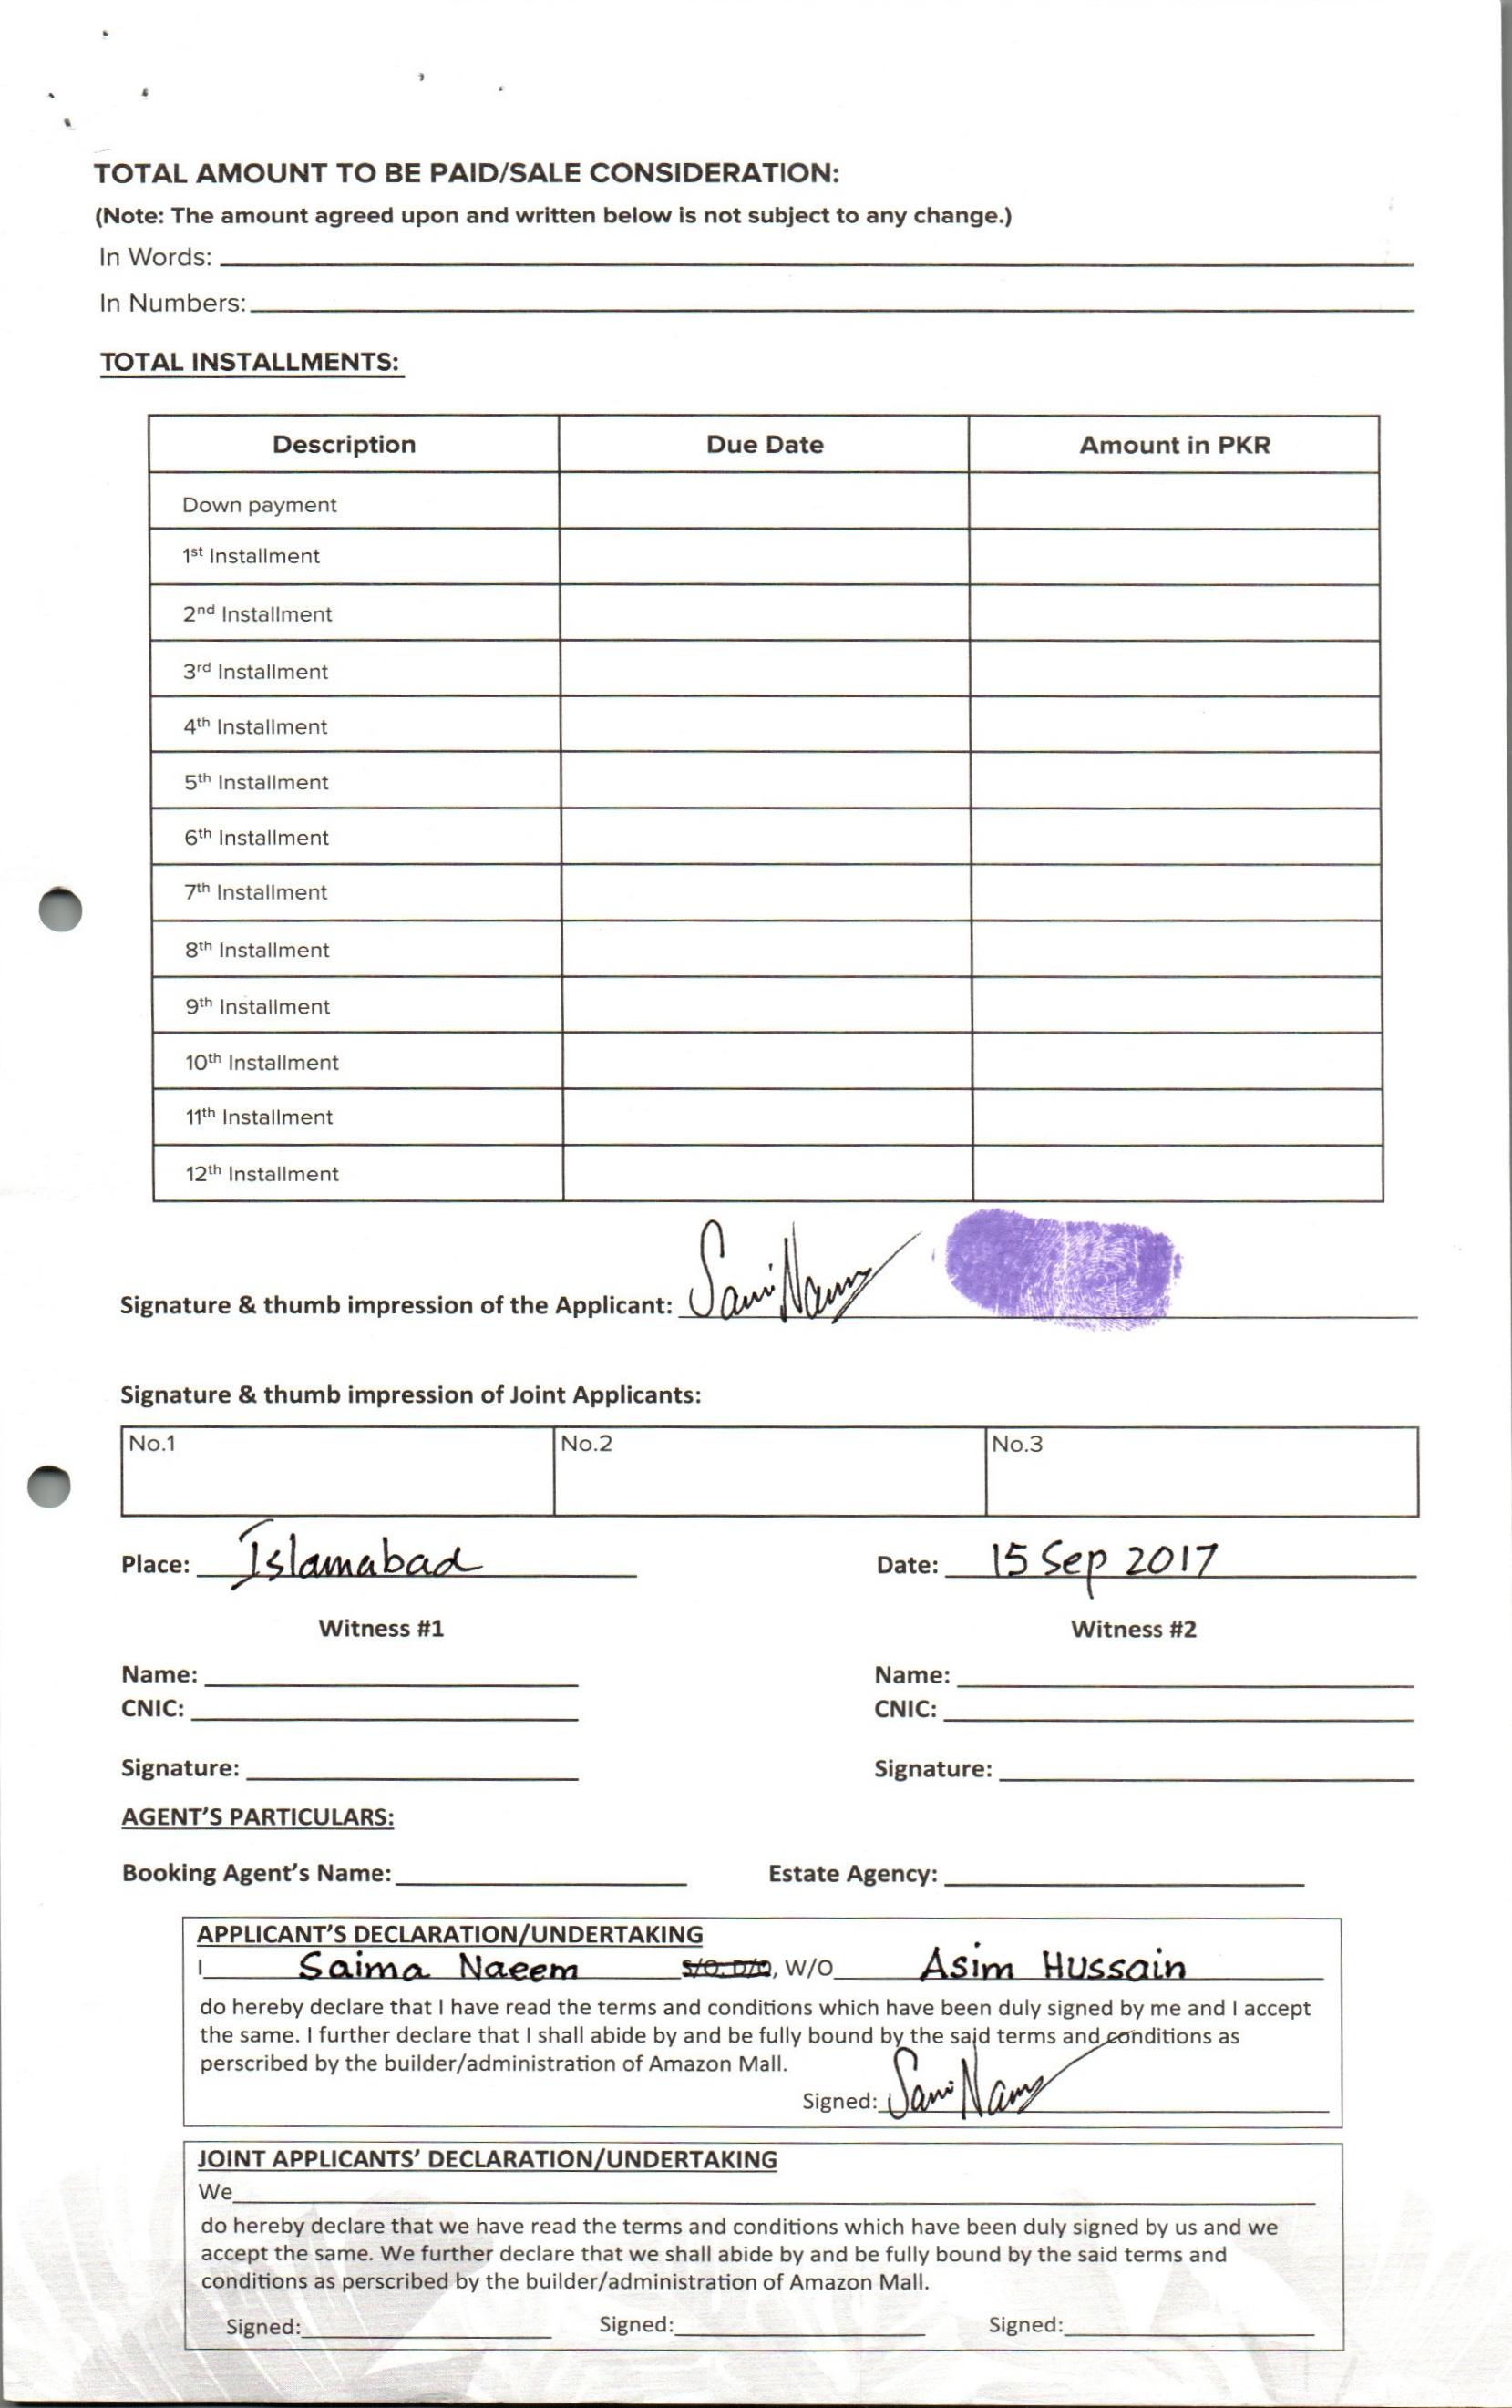 TOTAL AMOUNT TO BE PAID/SALE CONSIDERATION:
(Note: The amount agreed upon and written below is not subject to any change.)
In Words:
In Numbers:
TOTAL INSTALLMENTS:
Description Due Date Amount in PKR
Down payment
1st Installment
2nd Installment
3rd Installment
4th Installment
5th Installment
6th Installment
7th Installment
8th Installment
9th Installment
10th Installment
11th Installment
12th Installment
Signature & thumb impression of the Applicant:
Signature & thumb impression of Joint Applicants:
No.1 No.2 No.3
Place: Islamabad Date: 15 Sep 2017
Witness #1 Witness #2
Name: Name:
CNIC: CNIC:
Signature: Signature:
AGENT'S PARTICULARS:
Booking Agent's Name: Estate Agency:
APPLICANT'S DECLARATION/UNDERTAKING
I Saima Naeem S/O, D/O, W/O Asim Hussain
do hereby declare that I have read the terms and conditions which have been duly signed by me and I accept
the same. I further declare that I shall abide by and be fully bound by the said terms and conditions as
perscribed by the builder/administration of Amazon Mall.
Signed:
JOINT APPLICANTS' DECLARATION/UNDERTAKING
We
do hereby declare that we have read the terms and conditions which have been duly signed by us and we
accept the same. We further declare that we shall abide by and be fully bound by the said terms and
conditions as perscribed by the builder/administration of Amazon Mall.
Signed: Signed: Signed: